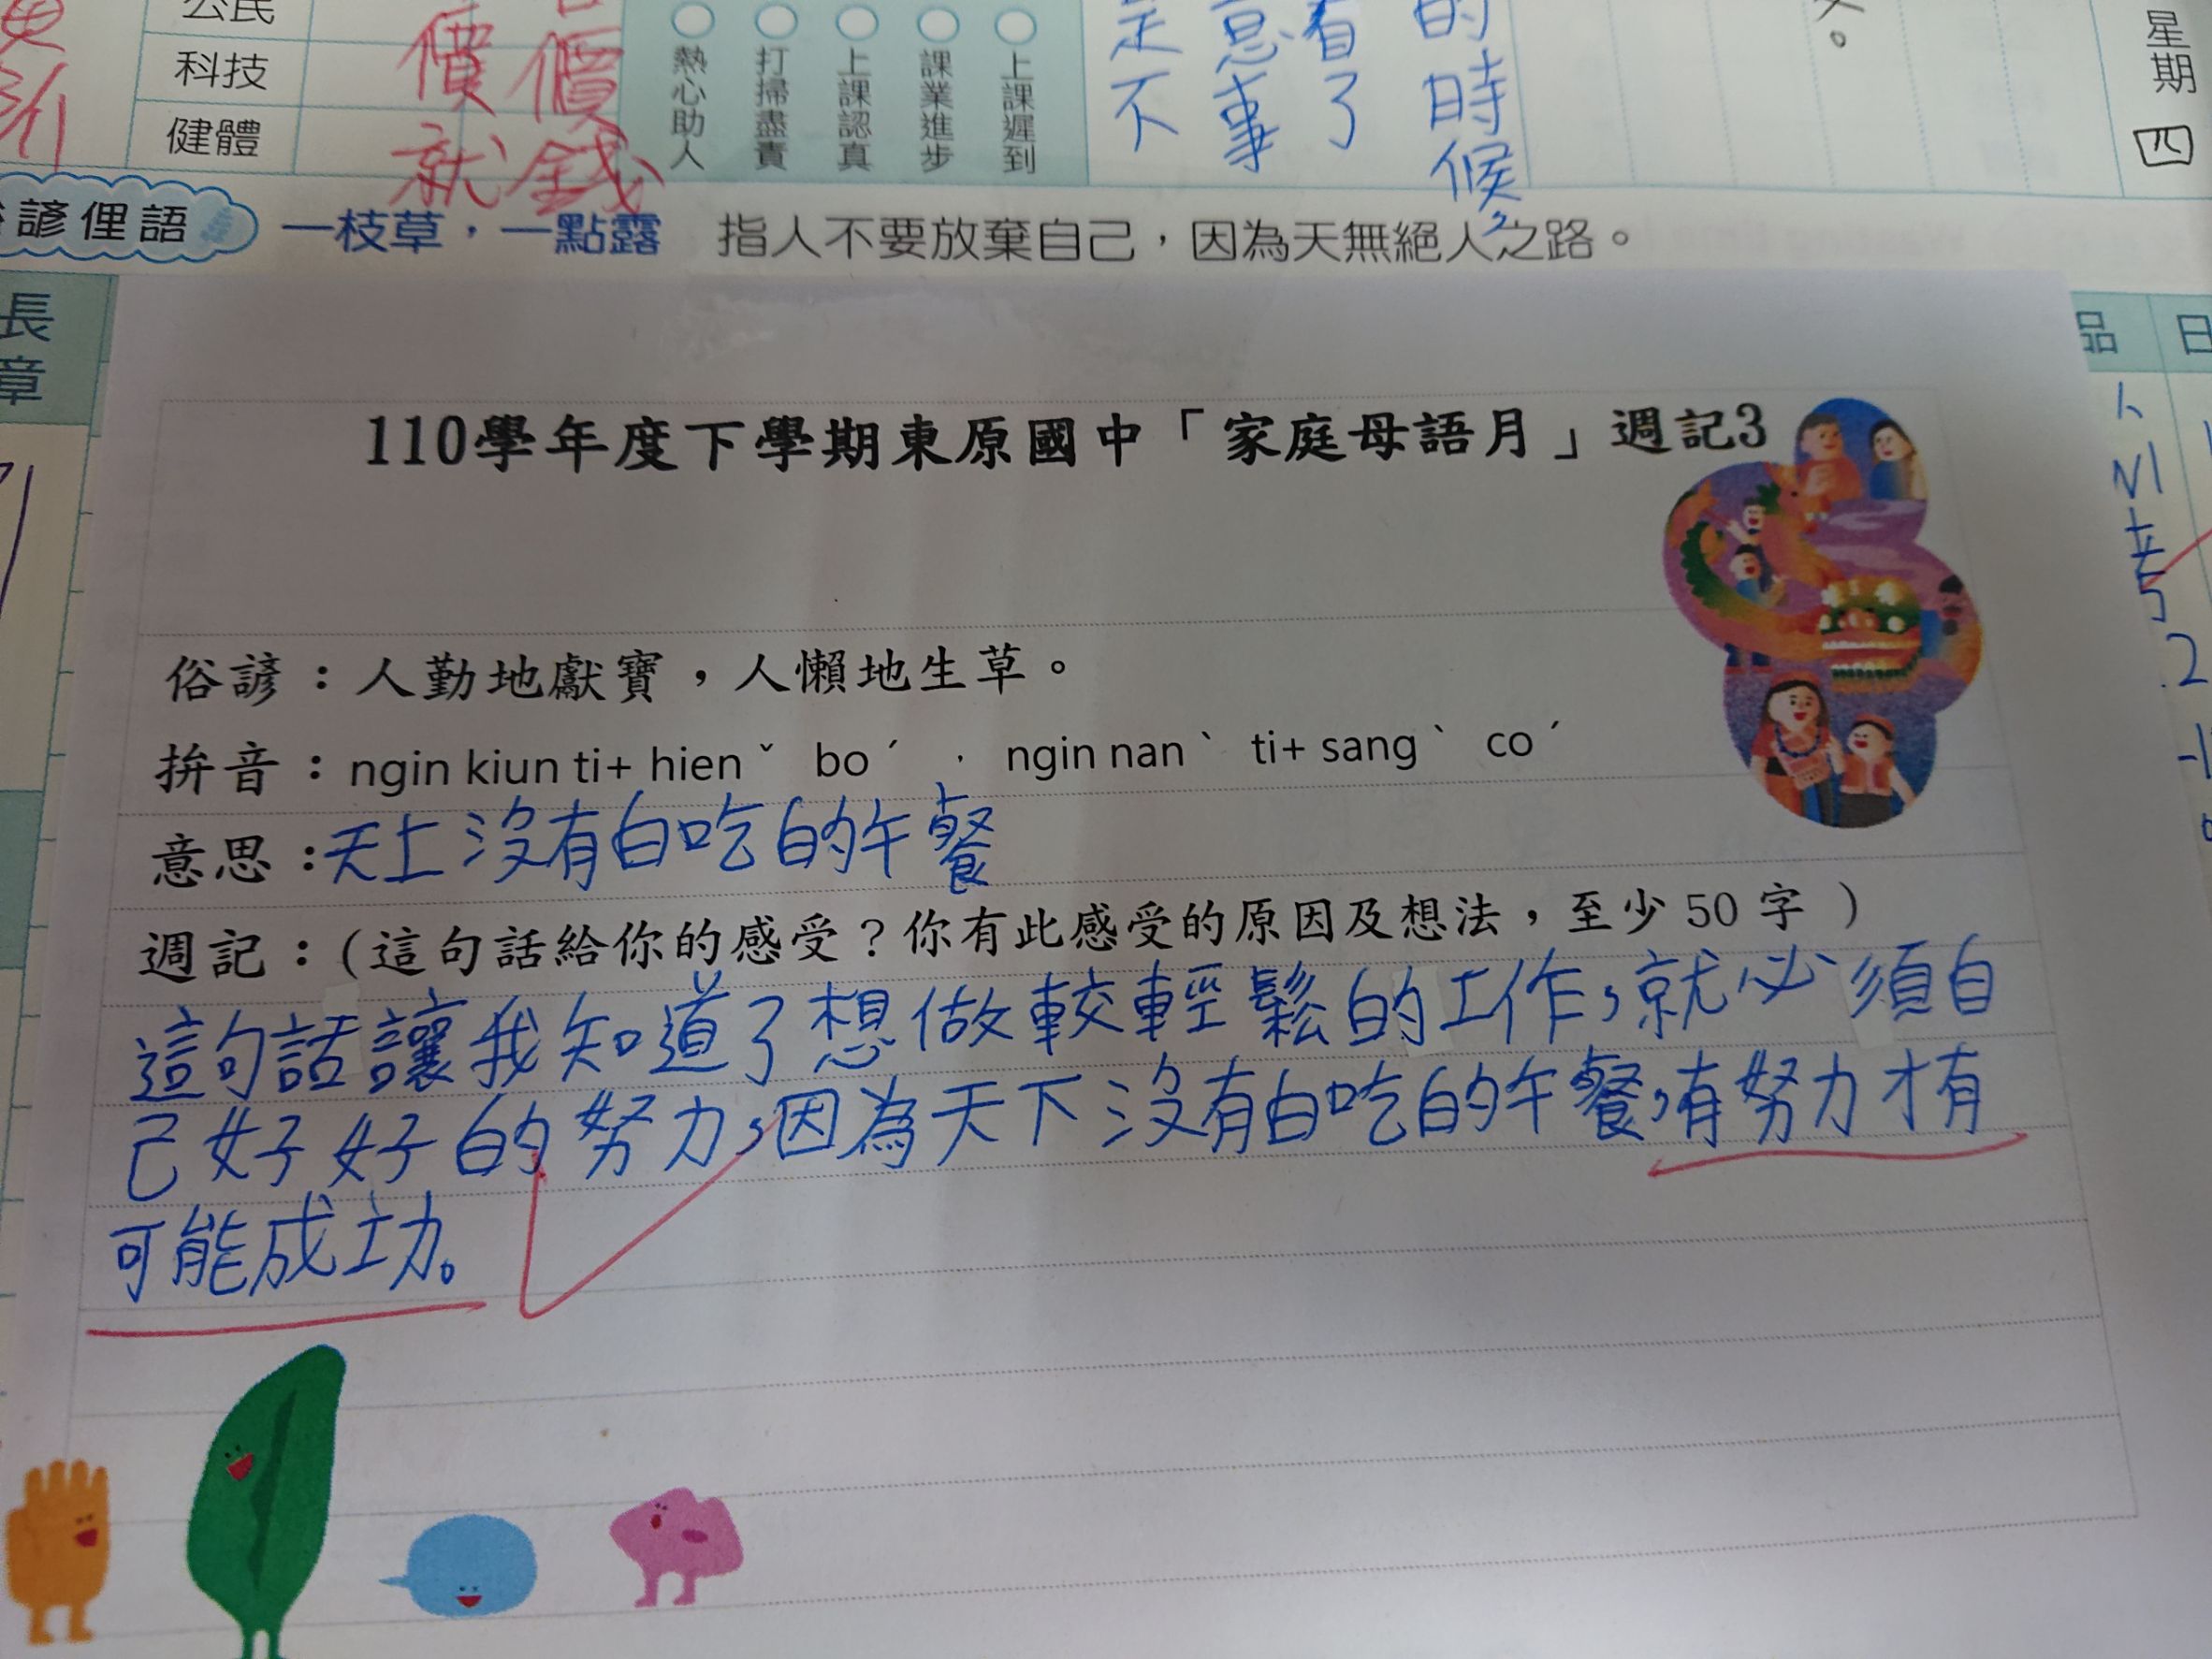 公民
科技
健體
價 價
就 錢
熱心助人
打掃盡責
上課認真
課業進步
上課遲到
的時候，
看了
意事
是不
星期 四
諺俚語 一枝草，一點露 指人不要放棄自己，因為天無絕人之路。
長
章
品
日
110學年度下學期東原國中「家庭母語月」週記3
俗諺：人勤地獻寶，人懶地生草。
拚音：ngin kiun ti+ hienˇ boˊ ， ngin nanˋ ti+ sangˋ coˊ
意思：天上沒有白吃的午餐
週記：(這句話給你的感受？你有此感受的原因及想法，至少 50 字 )
這句話讓我知道了想做較輕鬆的工作，就必須自
己好好的努力，因為天下沒有白吃的午餐，有努力才有
可能成功。